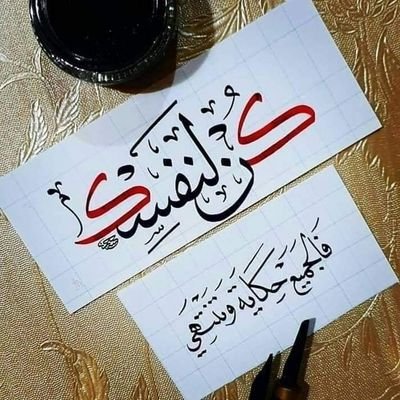 كن لنفسك
فَالجَميعُ حِكَايَة وَتَنْتَهِي